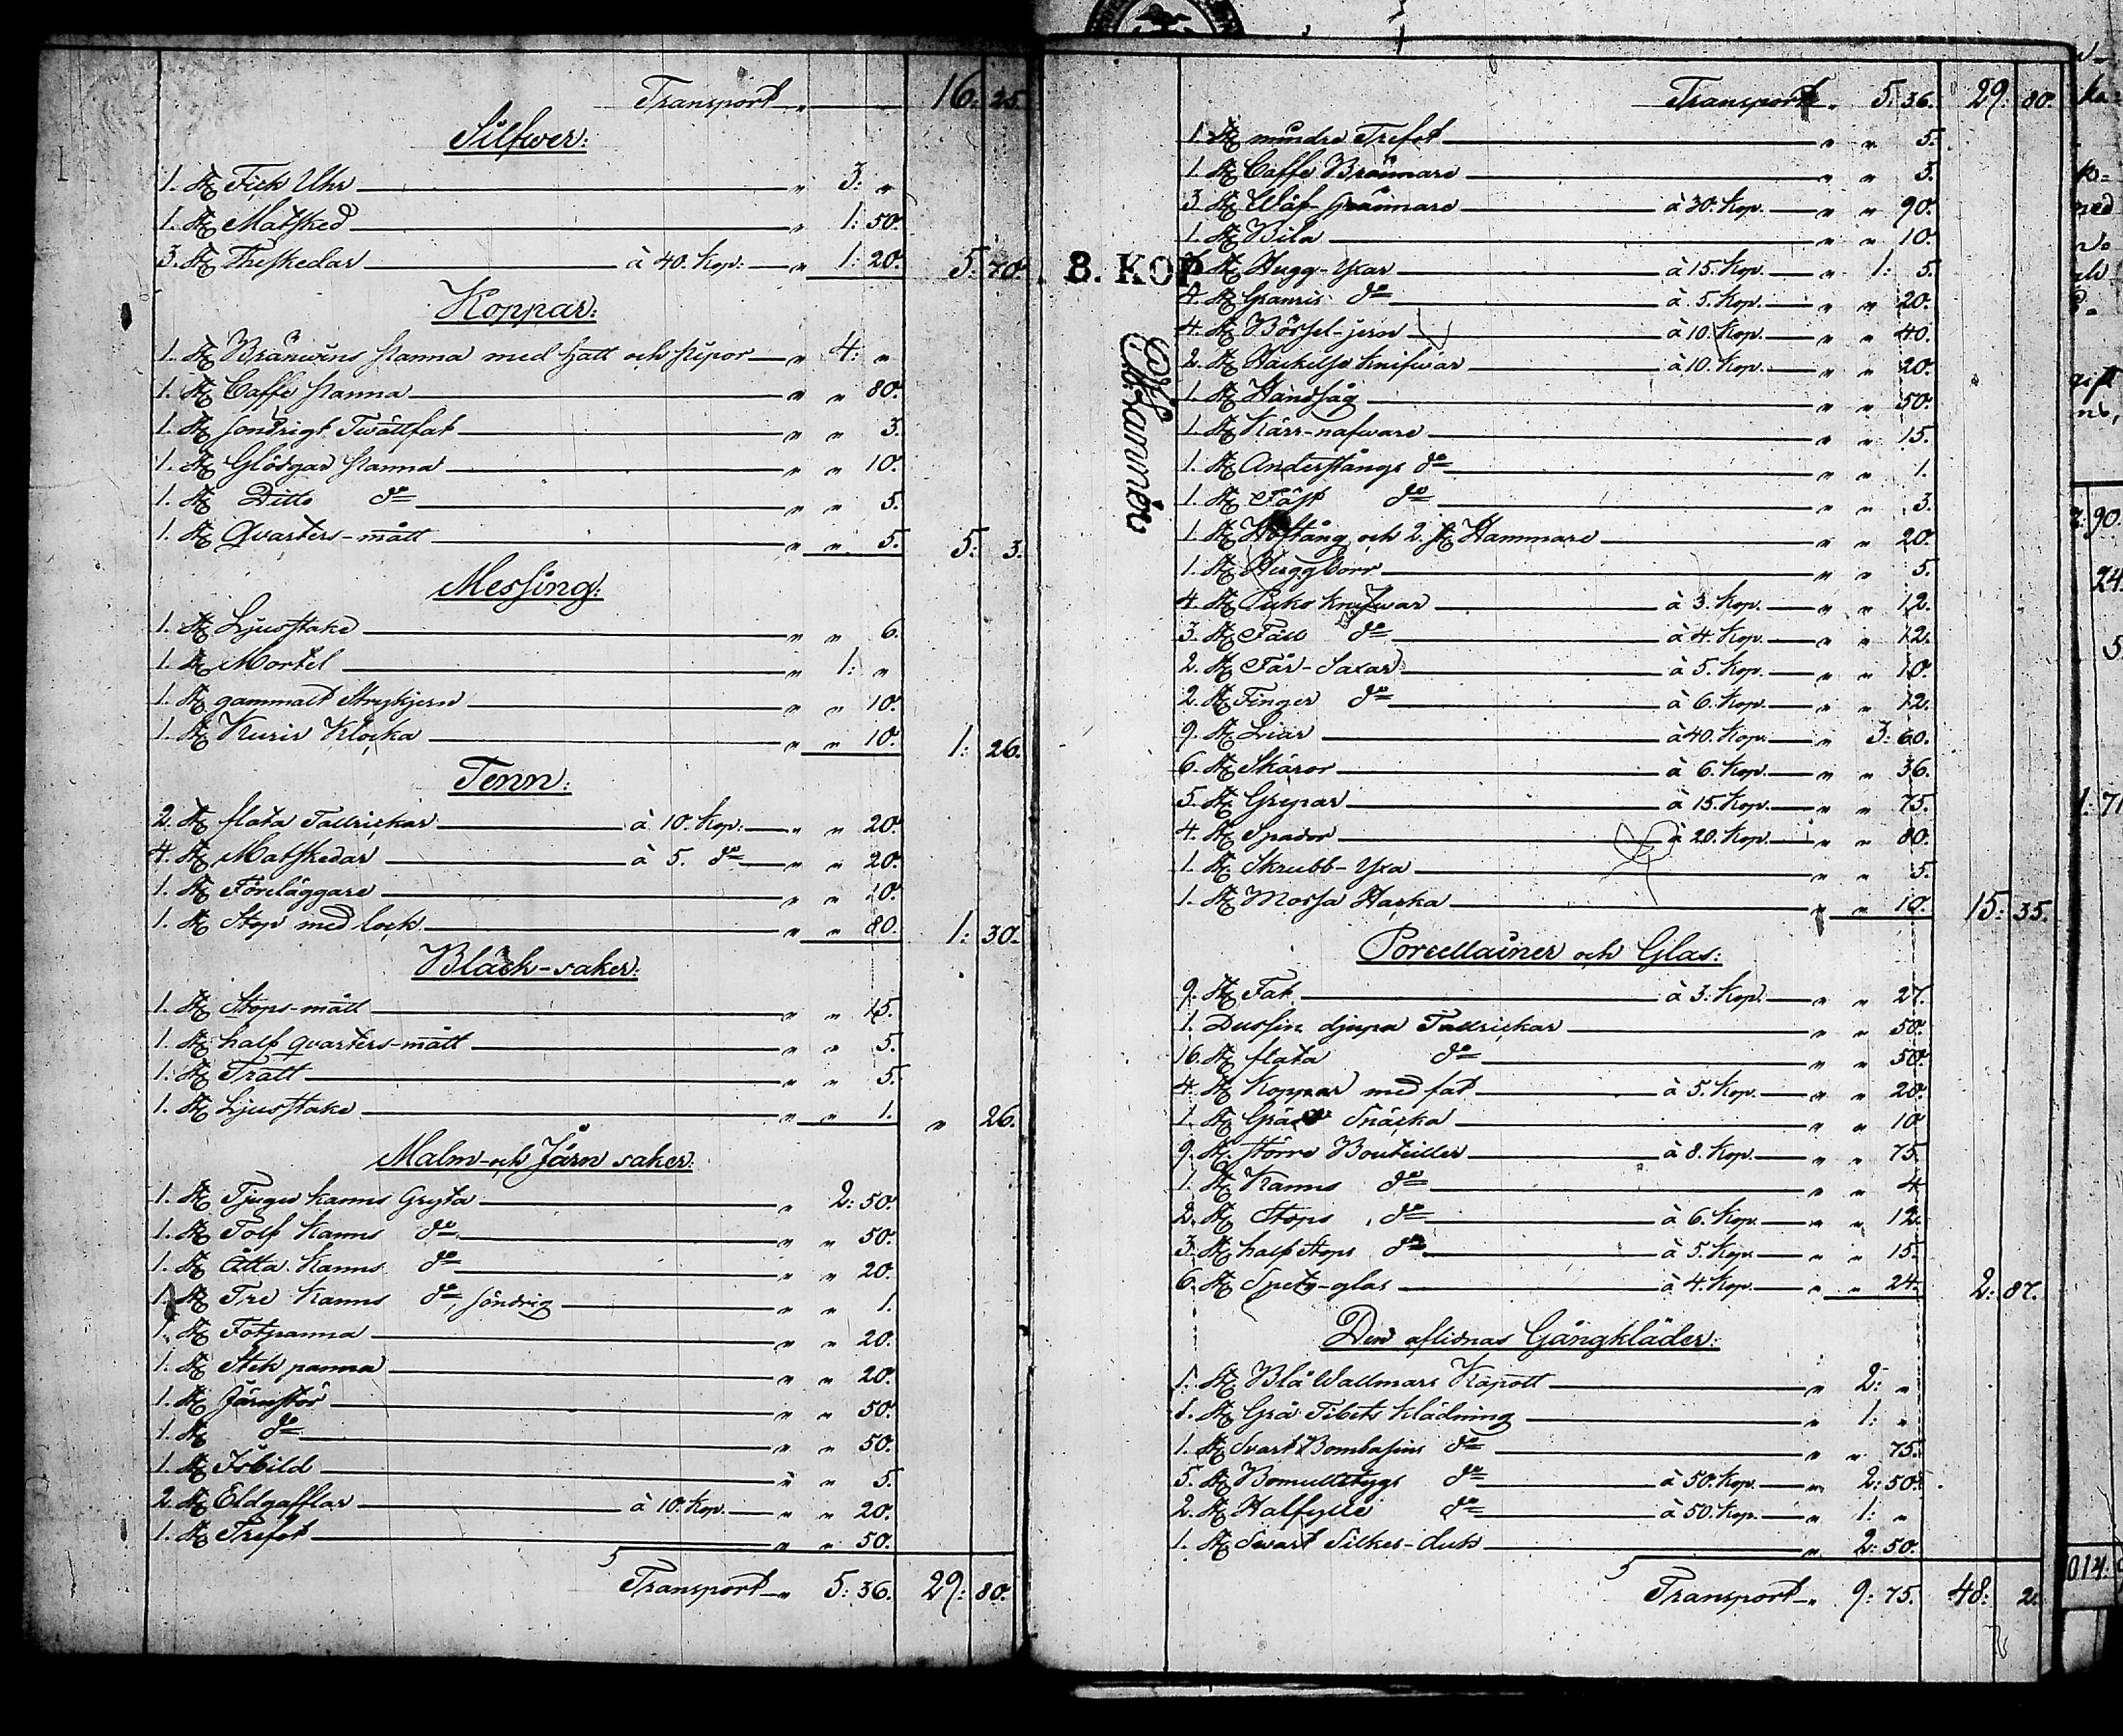 Transport „ 16: 25.
Silfwer:
1. St Fick Uhr „ 3: „
1. St Matsked „ 1: 50.
3. St Theskedar à 40. Kop: „ 1: 20. 5: 70.
Koppar:
1. St Bränwins panna med hatt och pipor „ 4: „
1. St Caffe panna „ „ 80.
1. St söndrigt Twättfat „ „ 3.
1. St Glödgad panna „ „ 10.
1. St Ditto do „ „ 5.
1. St Qvarters-mått „ „ 5. 5: 3.
Messing:
1. St Ljusstake „ „ 6.
1. St Mortel „ 1: „
1. St gammalt Strykjern „ „ 10.
1. St Kuris Klocka „ „ 10. 1: 26.
Tenn:
2. St flata Tallrickar à 10. Kop: „ „ 20.
4. St Matskedar à 5. do „ „ 20.
1. St Föreläggare „ „ 10.
1. St Stop med lock „ „ 80. 1: 30.
Bläck-saker:
1. St Stops-mått „ „ 15.
1. St half qvarters-mått „ „ 5.
1. St Tratt „ „ 5.
1. St Ljusstake „ „ 1. „ 26.
Malm- och Järn saker:
1. St Tjugu kanns Gryta „ 2: 50.
1. St Tolf Kanns do „ „ 50.
1. St Åtta Kanns do „ „ 20.
1. St Tre Kanns do, söndrig „ „ 1.
1. St Fotpanna „ „ 20.
1. St Stekpanna „ „ 20.
1. St Järnstör „ „ 50.
1. St do „ „ 50.
1. St Isbild „ „ 5.
2. St Eldgafflar à 10. Kop. „ „ 20.
1. St Trefot „ „ 50.
Transport „ 5: 36. 29: 80.
Transport „ 5: 36. 29: 80.
1. St mindre Trefot „ „ 5.
1. St Caffe Brännare „ „ 3.
3 St Wäf-Spännare à 30. Kop. „ „ 90.
1. St Bila „ „ 10.
8. KOP
St Hugg-Yxar à 15. Kop. „ 1: 5.
4. St Granris do à 5. Kop. „ „ 20.
4. St Börsel-jern à 10. Kop. „ „ 40.
2. St Hackelse Knifwar à 10. Kop. „ „ 20.
1. St Handsåg „ „ 50.
1. St Kärr-nafware „ „ 15.
1. St Anderstångs do „ „ 1.
1. St do „ „ 3.
1. St Hoftång och 2. st Hammare „ „ 20.
1. St Huggborr „ „ 5.
4. St Puko Knifwar à 3. Kop. „ „ 12.
3. St Fäll do à 4. Kop. „ „ 12.
2. St Får-Saxar à 5. Kop. „ „ 10.
2. St Finger do à 6. Kop. „ „ 12.
9. St Liar à 40. Kop. „ 3: 60.
6. St Skäror à 6. Kop. „ „ 36.
5. St Grepar à 15. Kop. „ „ 75.
4. St Spador à 20. Kop. „ „ 80.
1. St Skrubb-Yxa „ „ 5.
1. St Mossa Hacka „ „ 10. 15: 35.
Porcellainer och Glas:
9. St Fat à 3. Kop. „ „ 27.
1. Dussin djupa Tallrickar „ „ 50.
16. St flata do „ „ 50.
4. St Koppar med fat à 5. Kop. „ „ 20.
1. St Snäcka „ „ 10
9. St större Bouteiller à 8. Kop. „ „ 75.
1. St Kanns do „ „ 4
2. St Stops do à 6. Kop. „ „ 12.
3. St half Stops do à 5. Kop. „ „ 15.
6. St Spets-glas à 4. Kop. „ „ 24. 2: 87.
Den aflidnas Gångkläder:
1. St Blå Wallmars Kapott „ 2: „
1. St Grå Tibets Klädning „ 1: „
1. St Svart Bombasins do „ „ 75.
5. St Bomullstygs do à 50. Kop. „ 2: 50.
2. St Halfylle do à 50. Kop. „ 1: „
1. St Swart Silkes-duk „ 2: 50.
Transport „ 9: 75. 48: 2.